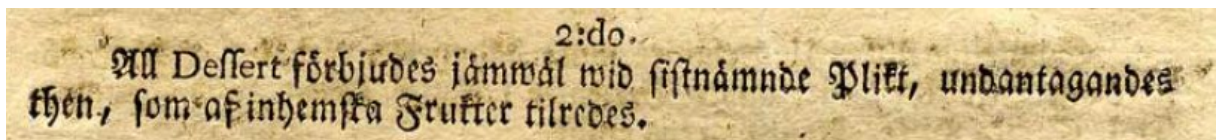 2:do.
All Dessert förbjudes jämwäl wid sistnämnde Plikt, undantagandes
then, som af inhemska Frukter tilredes.